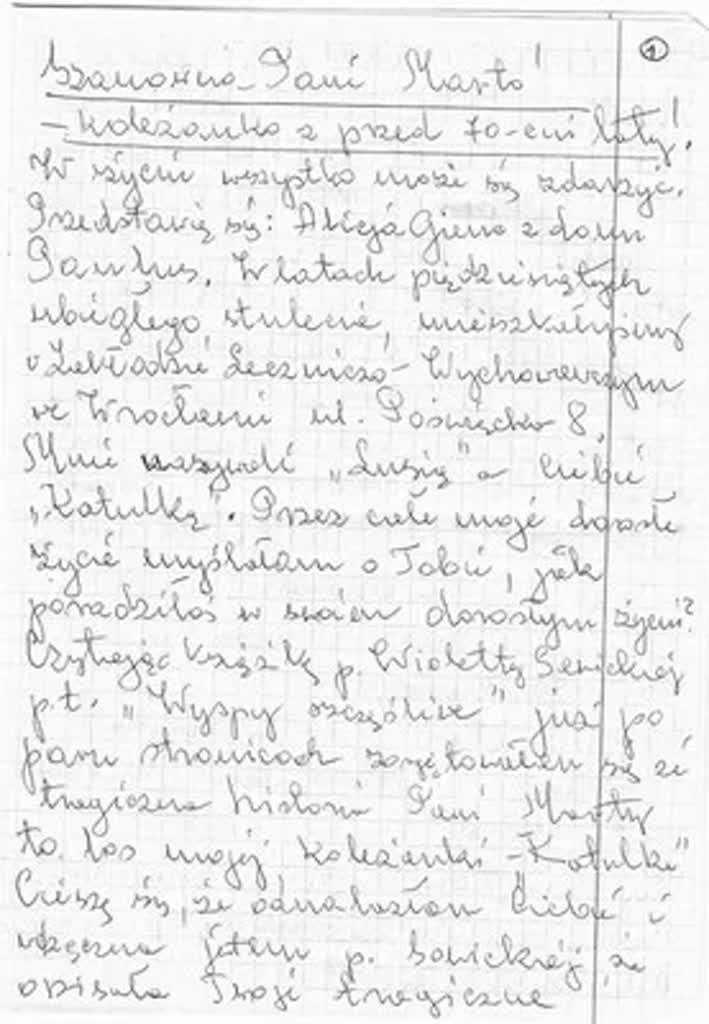 ①
Szanowna Pani Marto!
- koleżanko z przed 70-ciu laty!
W życiu wszystko może się zdarzyć.
Przedstawię się: Alicja z domu
W latach pięćdziesiątych
ubiegłego stulecia, mieszkałyśmy
w Zakładzie Leczniczo-Wychowawczym
we Wrocławiu ul. Poświęcka 8,
Mnie nazywali „Lusią" a Ciebie
„Katulką". Przez całe moje dorosłe
życie myślałam o Tobie, jak
poradziłaś w swoim dorosłym życiu?
Czytając książkę p. Wioletty Sawickiej
p.t. „Wyspy szczęśliwe" już po
paru stronicach zorientowałam się że
tragiczna historia Pani Marty
to los mojej koleżanki - „Katulki"
Cieszę się, że odnalazłam Ciebie i
wdzięczna jestem p. Sawickiej że
opisała Twoje tragiczne